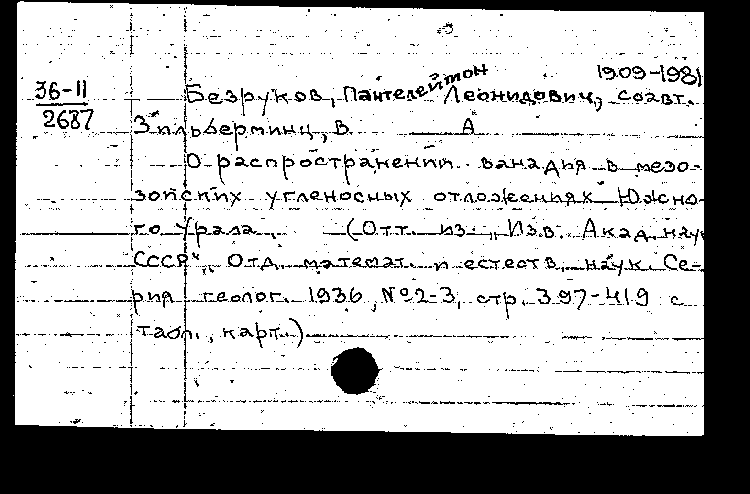 1909-1981
36-11
2687
Безруков, Пантелеймон Леонидович, соавт.
Зильберминц, В. А
О распространении ванадия в мезо-
зойских угленосных отложениях Южно-
го Урала. (Отт. из „Изв. Акад. наук
СССР“, Отд. математ. и естеств. наук. Се-
рия геолог. 1936, №2-3, стр. 397-419 с
табл., карт.)